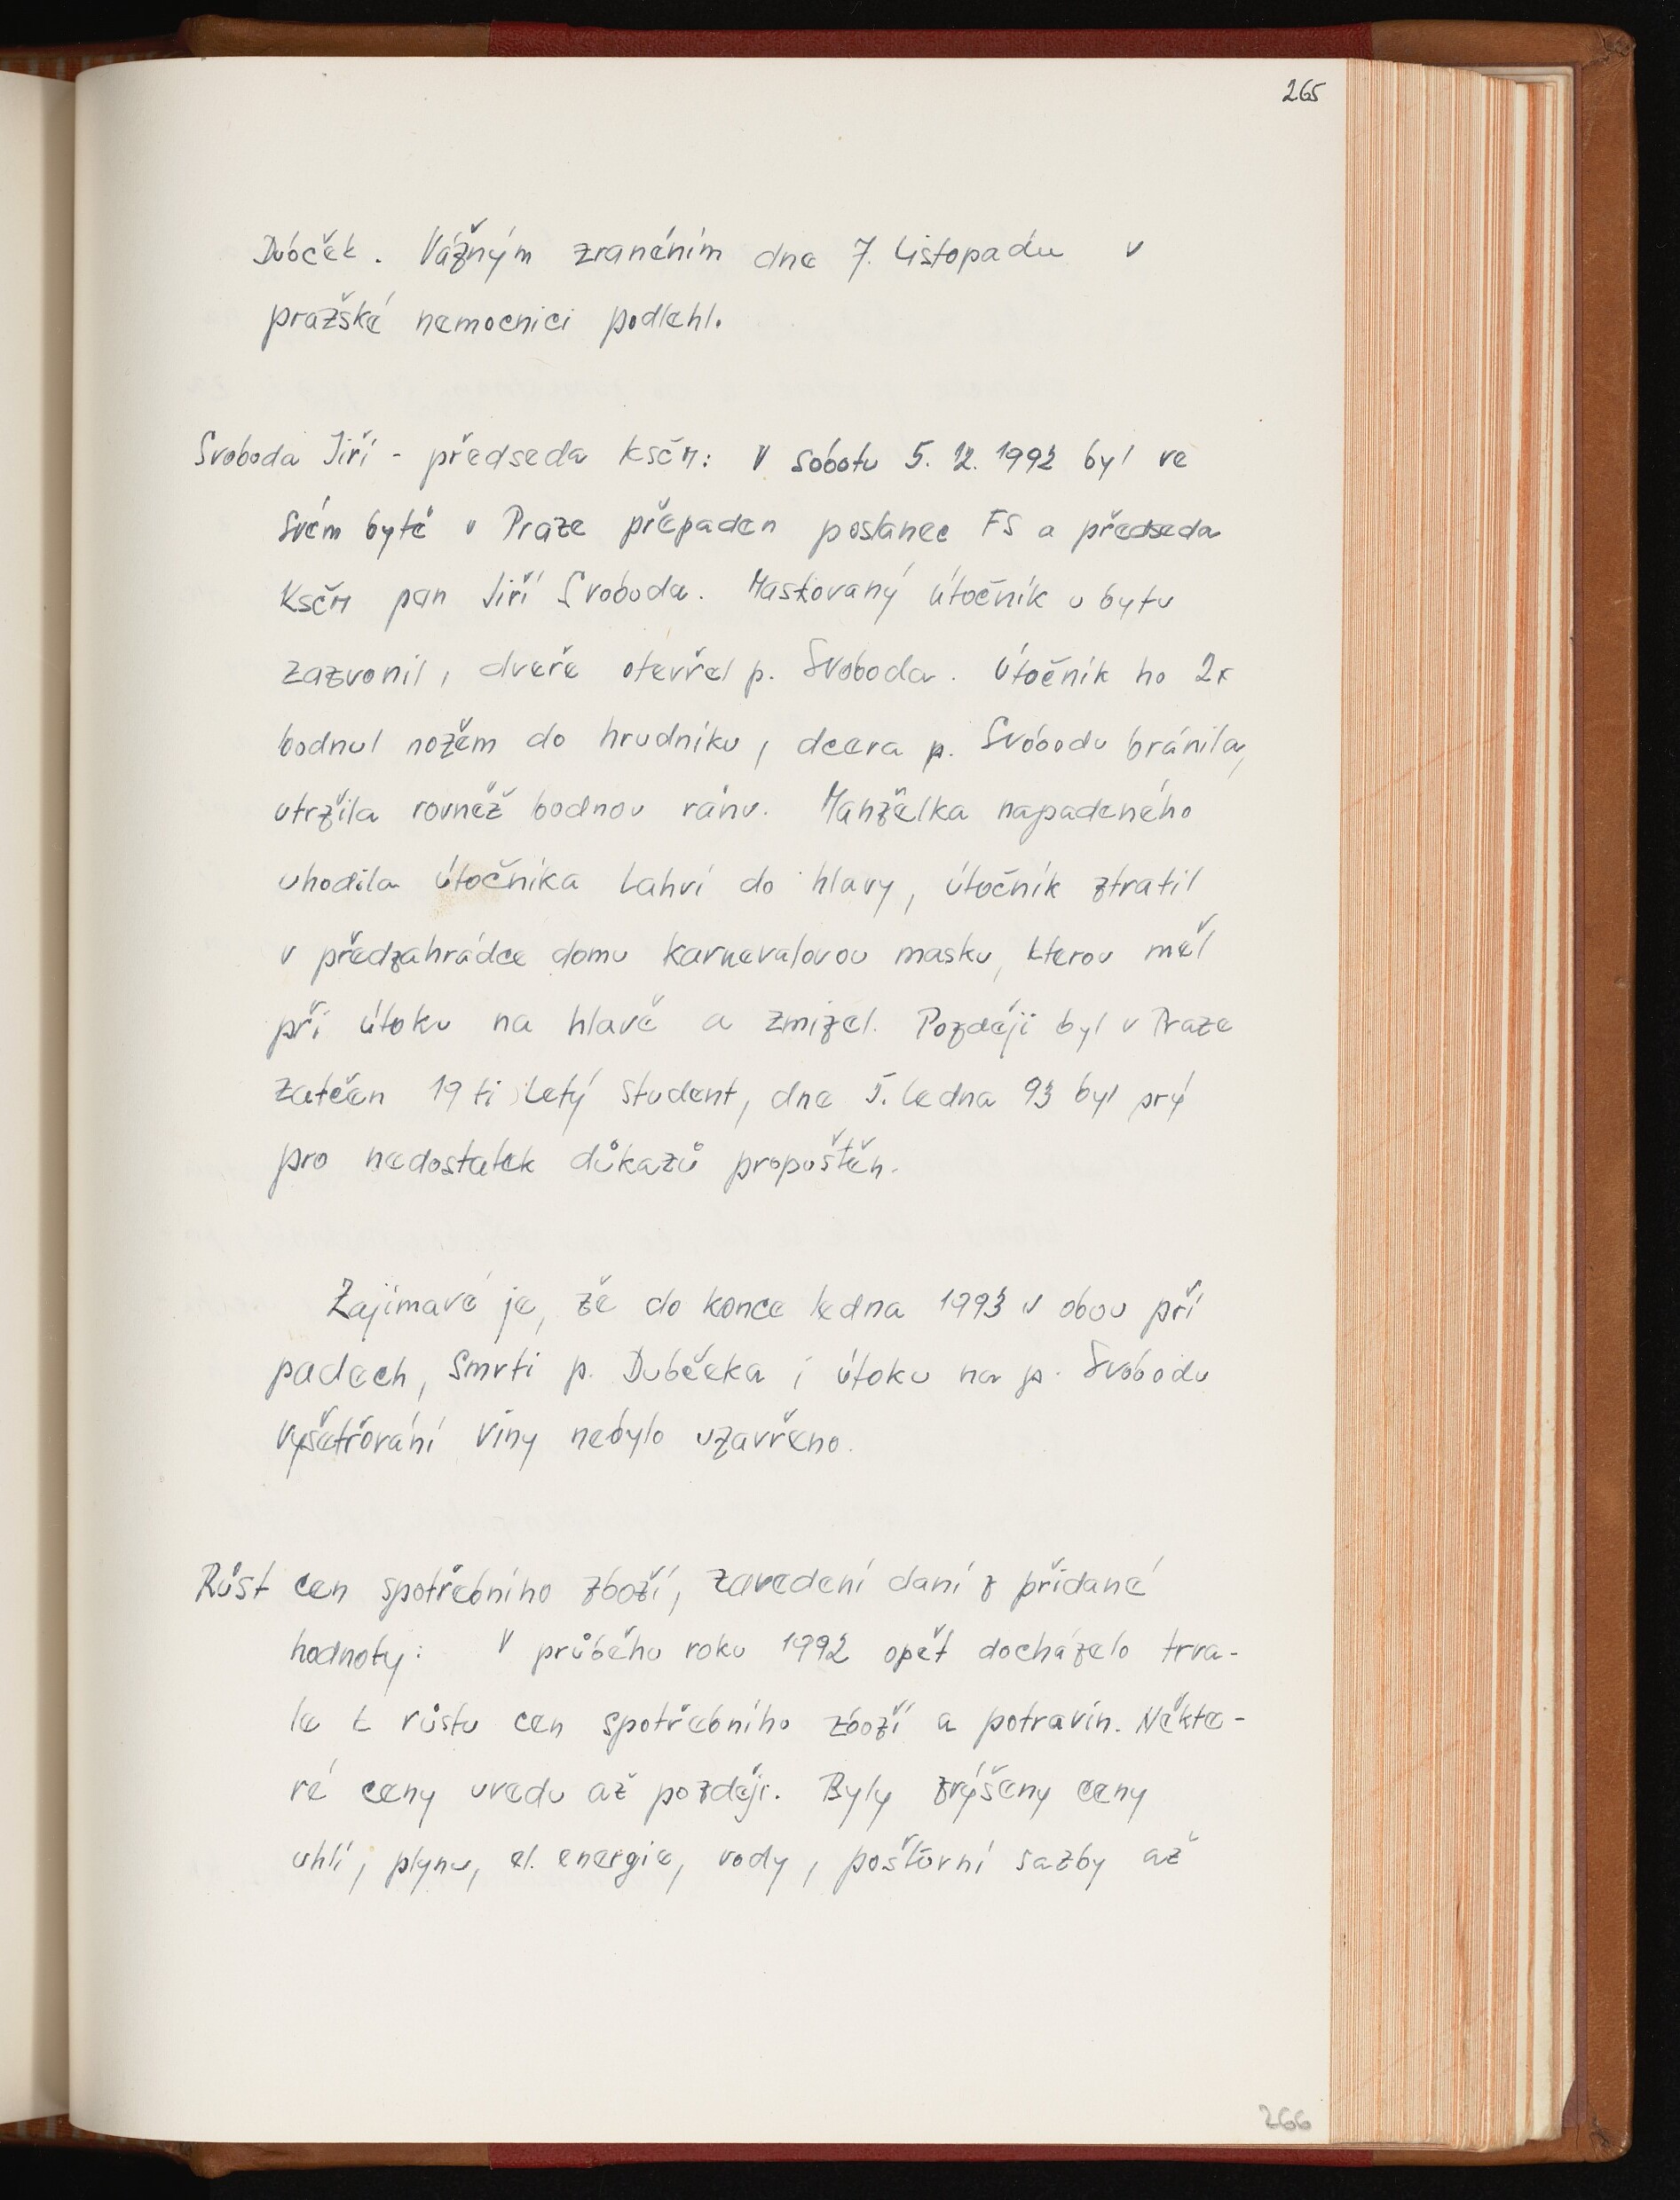 265
Dubček. Vážným zraněním dne 7. listopadu v
pražské nemocnici podlehl.
Svoboda Jiří - předseda KSČM: V sobotu 5. 12. 1992 byl ve
svém bytě v Praze přepaden poslanec FS a předseda
KSČM pan Jiří Svoboda. Maskovaný útočník u bytu
zazvonil, dveře otevřel p. Svoboda. Útočník ho 2x
bodnul nožem do hrudníku, dcera p. Svobodu bránila,
utržila rovněž bodnou ránu. Manželka napadeného
uhodila útočníka lahví do hlavy, útočník ztratil
v předzahrádce domu karnevalovou masku, kterou měl
při útoku na hlavě a zmizel. Později byl v Praze
zatčen 19 ti letý student, dne 5. ledna 93 byl prý
pro nedostatek důkazů propuštěn.
Zajímavé je, že do konce ledna 1993 v obou pří
padech, smrti p. Dubčeka i útoku na p. Svobodu
vyšetřování viny nebylo uzavřeno.
Růst cen spotřebního zboží, zavedení daní z přidané
hodnoty: V průběhu roku 1992 opět docházelo trva-
le k růstu cen spotřebního zboží a potravin. Někte-
ré ceny uvedu až později. Byly zvýšeny ceny
uhlí, plynu, el. energie, vody, poštovní sazby až
266